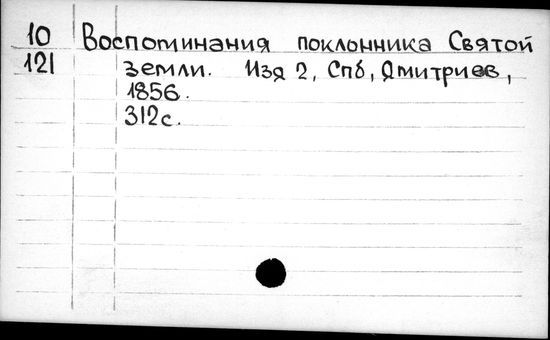 10 Воспоминания поклонника Святой
121 земли. Изд 2, Спб, Дмитриев,
1856.
312с.